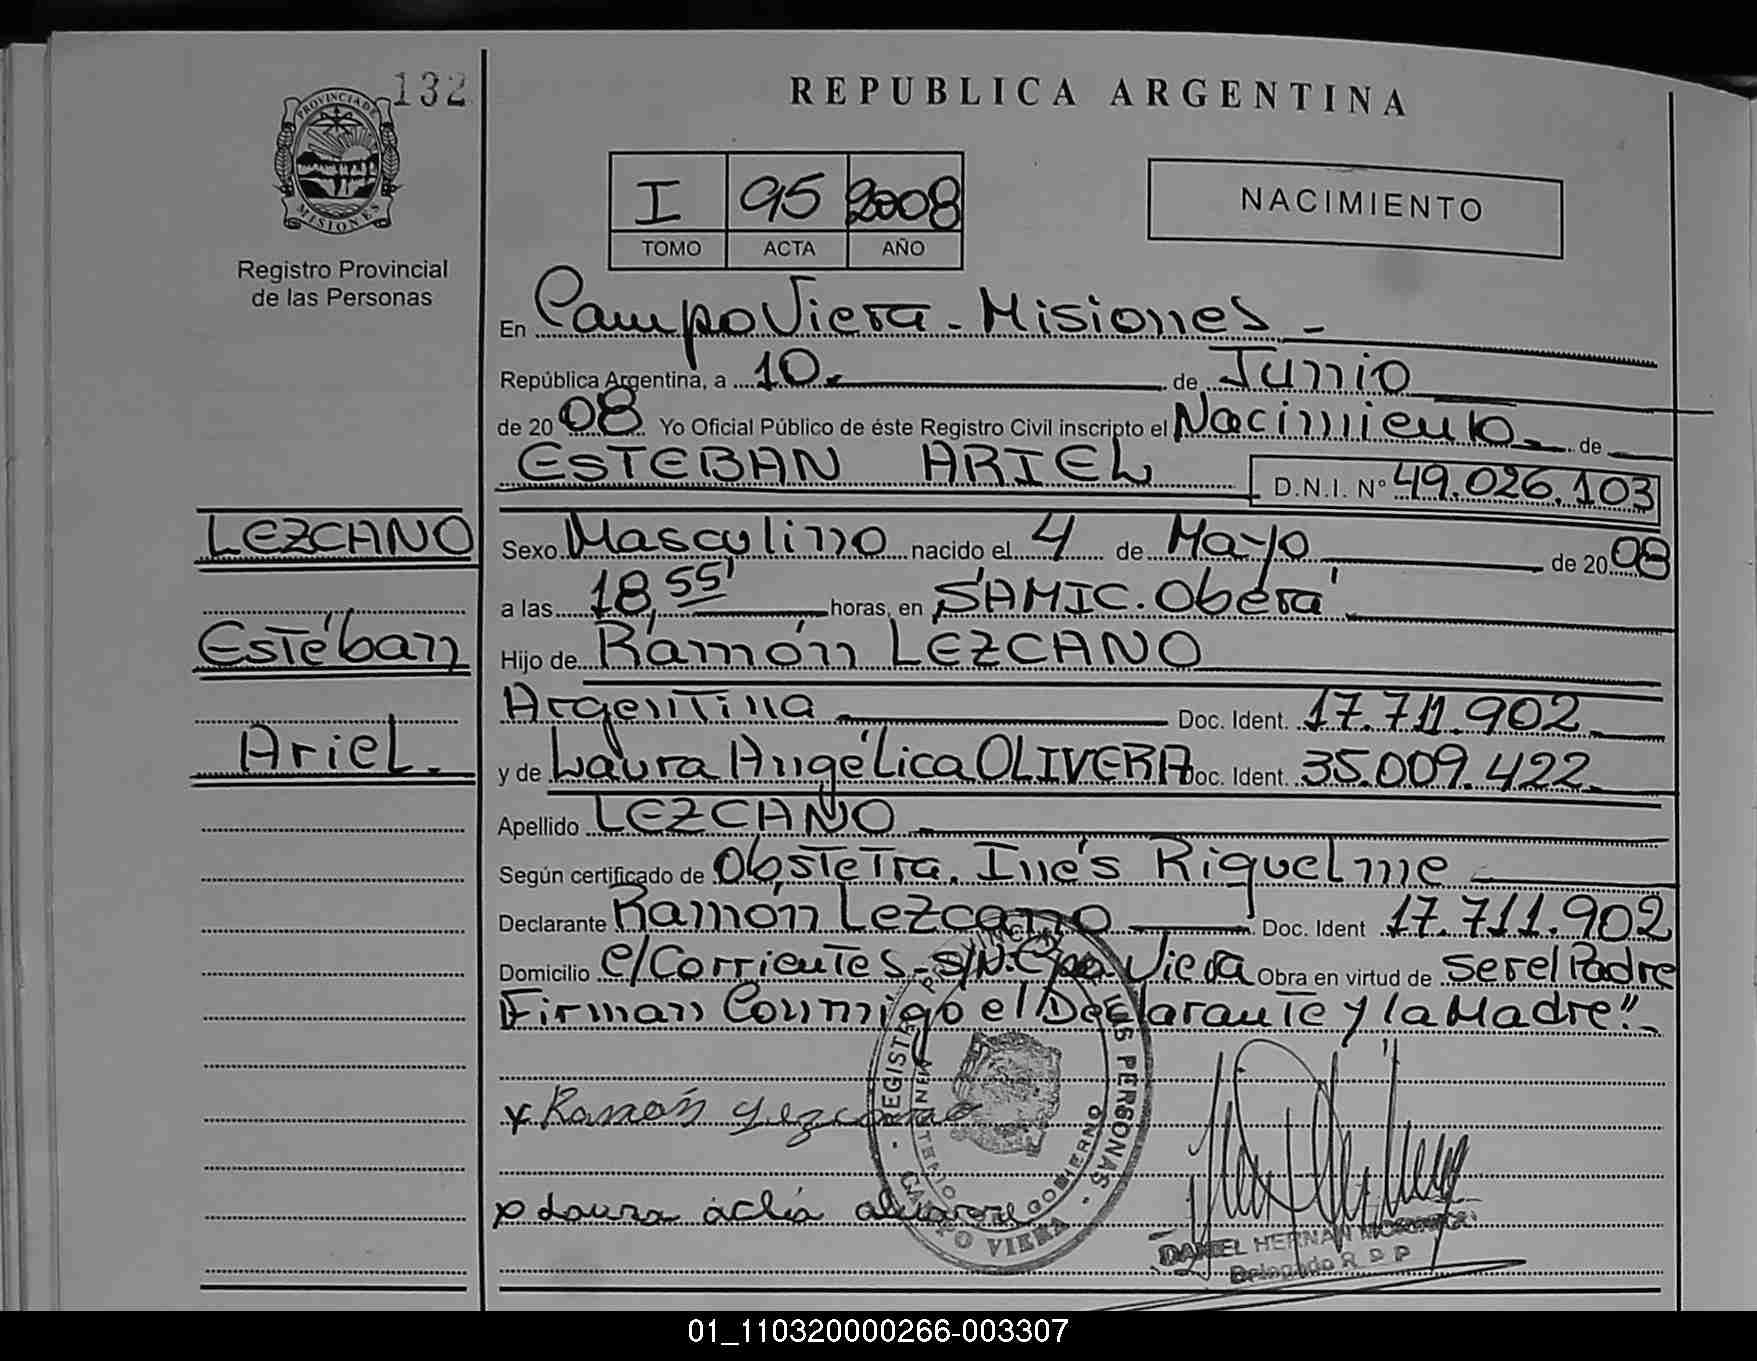 132
PROVINCIA DE
MISIONES
Registro Provincial
de las Personas
REPUBLICA ARGENTINA
I 95 2008
TOMO ACTA AÑO
NACIMIENTO
En Campo Viera - Misiones -
República Argentina, a 10. de Junio
de 2008 Yo Oficial Público de éste Registro Civil inscripto el Nacimiento de
ESTEBAN ARIEL D.N.I. N° 49.026.103
LEZCANO
Estéban
Ariel.
Sexo Masculino nacido el 4 de Mayo de 2008
a las 18,55' horas, en SAMIC. Oberá
Hijo de Ramón LEZCANO
Argentina Doc. Ident. 17.711.902
y de Laura Angélica OLIVERA Doc. Ident. 35.009.422
Apellido LEZCANO
Según certificado de Obstetra. Inés Riquelme
Declarante Ramón Lezcano Doc. Ident 17.711.902
Domicilio c/Corrientes - S/N. Cpo. Viera Obra en virtud de ser el Padre
Firman Conmigo el Declarante y la Madre".-
x Ramón Lezcano
Laura
REGISTRO PROVINCIAL DE LAS PERSONAS - CAMPO VIERA -
GOBIERNO
DANIEL HERNAN
Delegado R P P
01_110320000266-003307